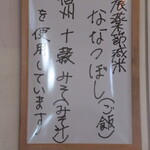 農薬節減米
ななつぼし(ご飯)
信州 十穀みそ(みそ汁)
を使用しています